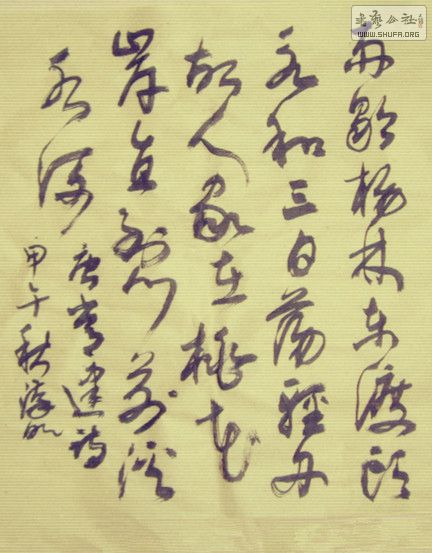 書藝公社
WWW.SHUFA.ORG
雨歇楊林東渡頭
永和三日蕩輕舟
故人家在桃花
岸直到門前溪
水流
唐常建詩
甲午秋